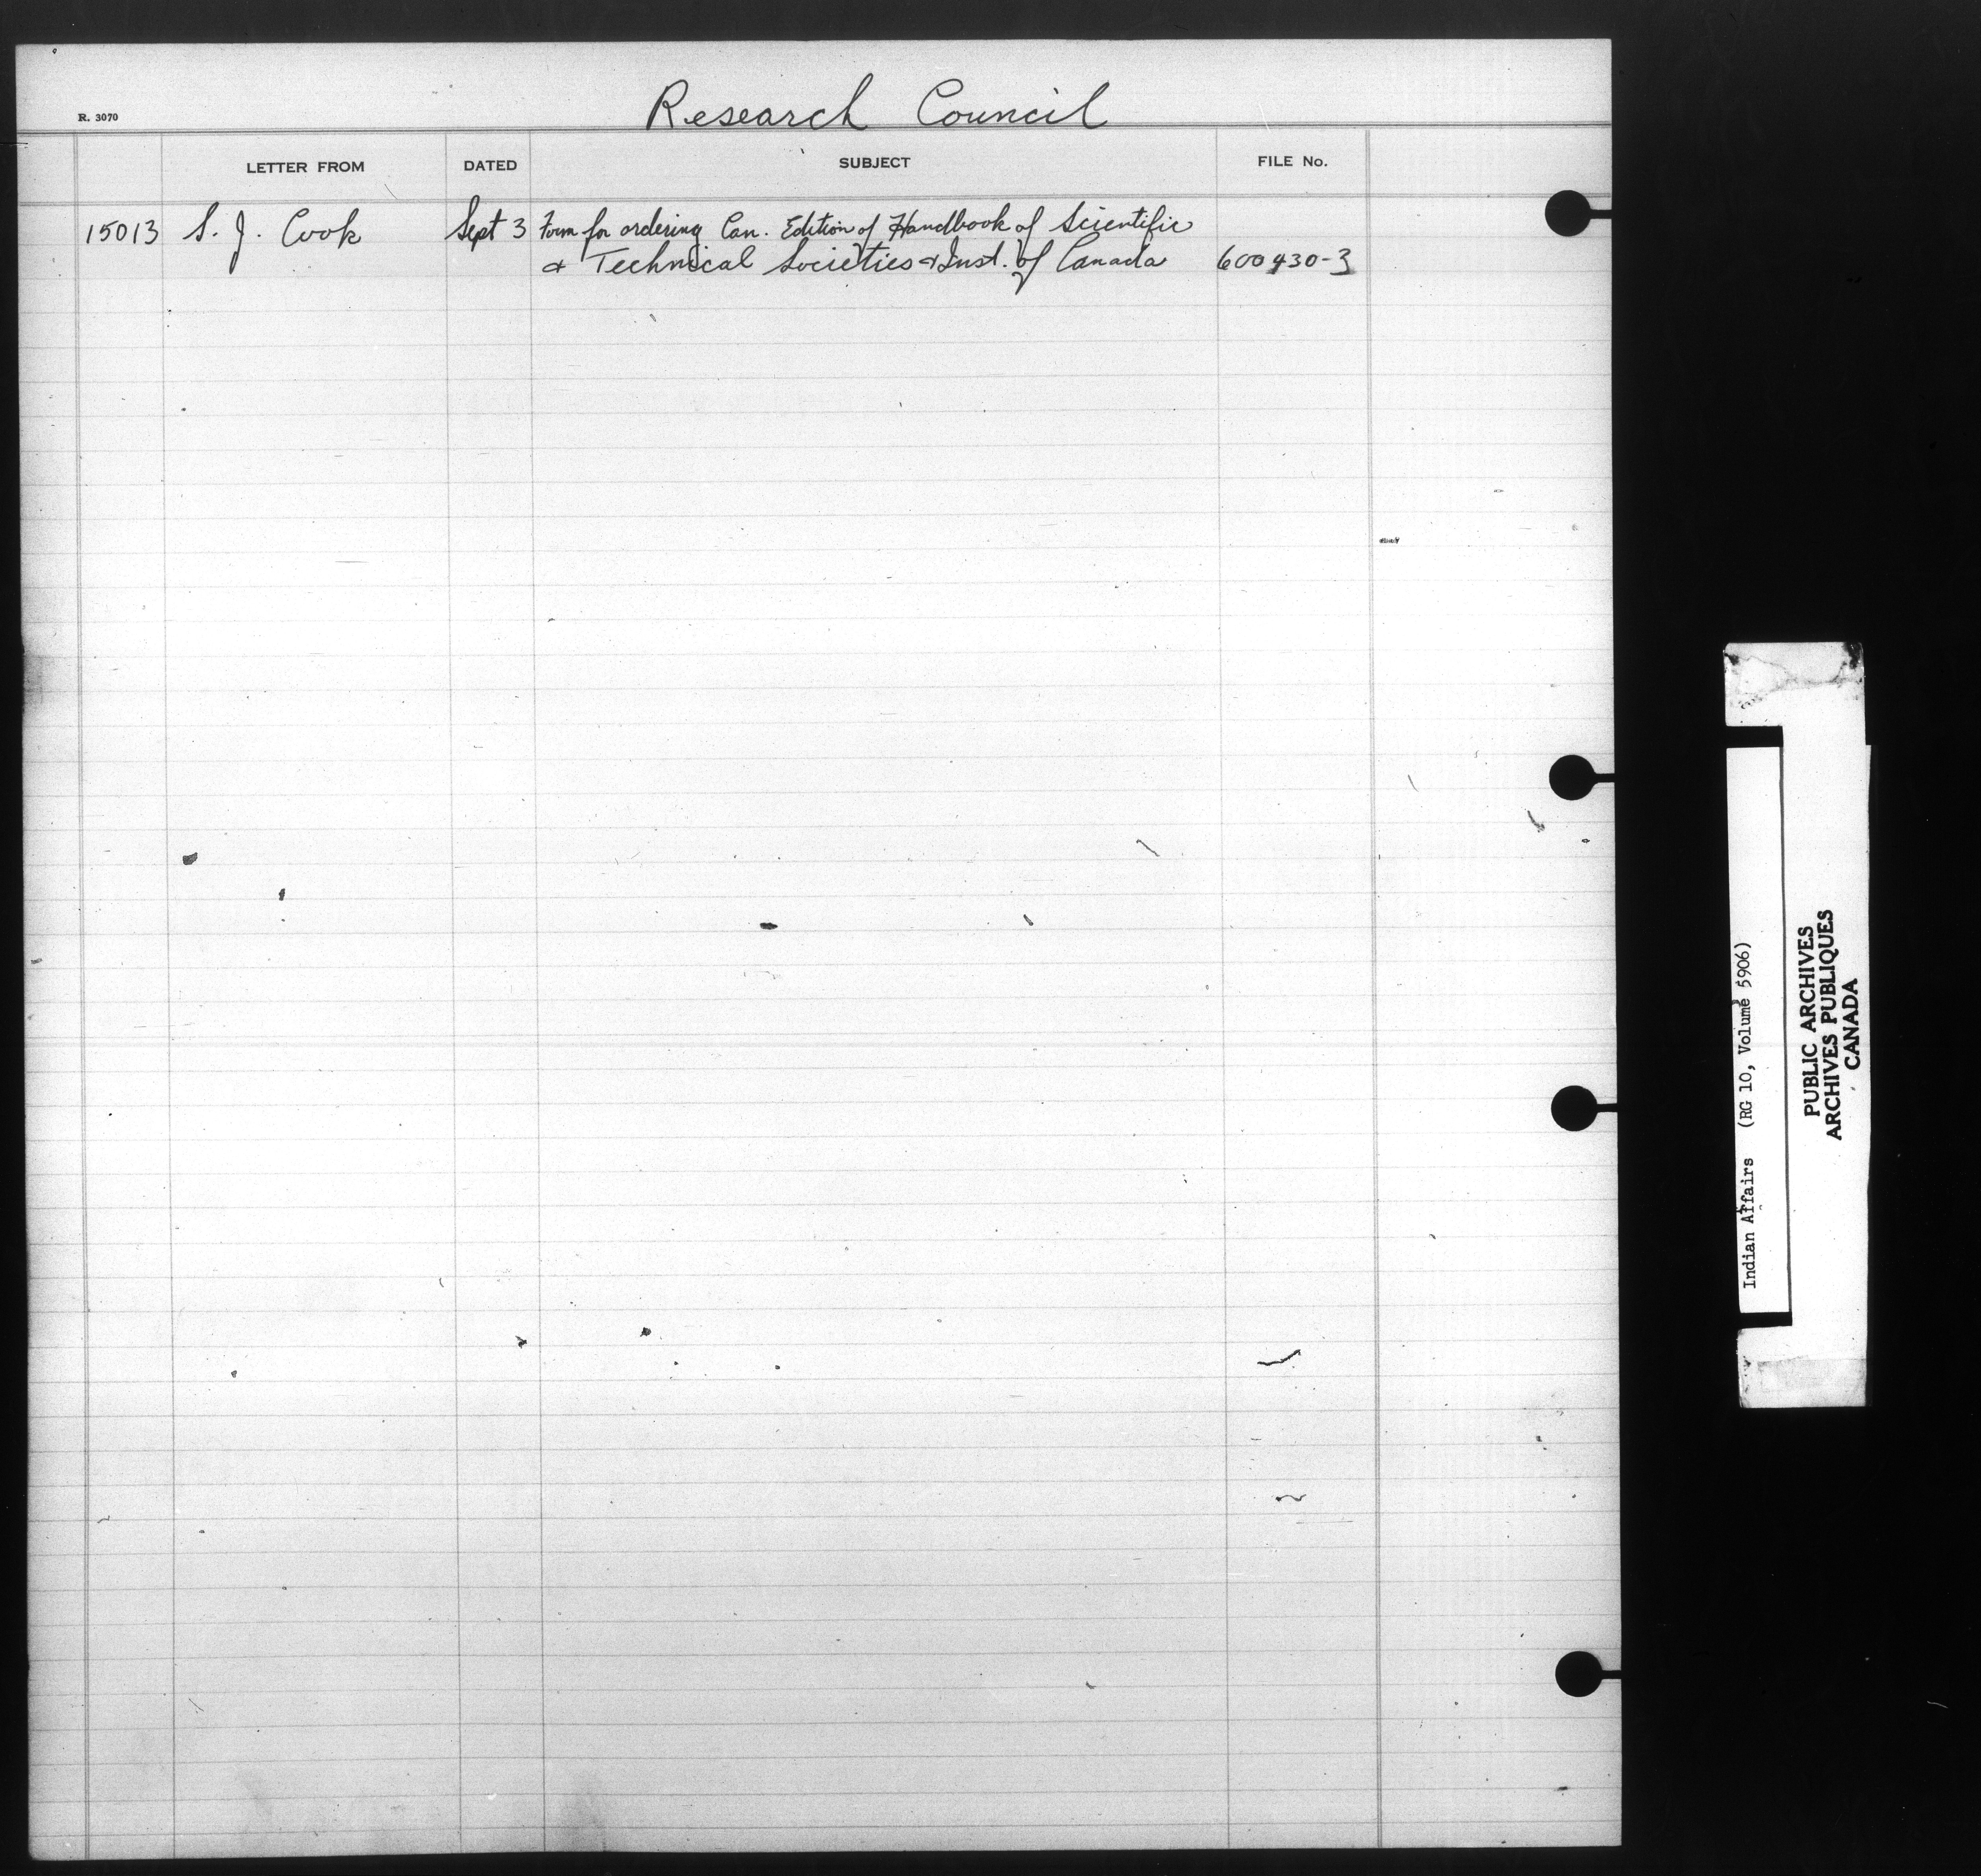 Research Council
R. 3070
LETTER FROM DATED SUBJECT FILE No.
15013 S. J. Cook Sept 3 Form for ordering Can. Edition of Handbook of Scientific
& Technical Societies & Inst. of Canada 600430-3
Indian Affairs (RG 10, Volume 5906)
PUBLIC ARCHIVES
ARCHIVES PUBLIQUES
CANADA